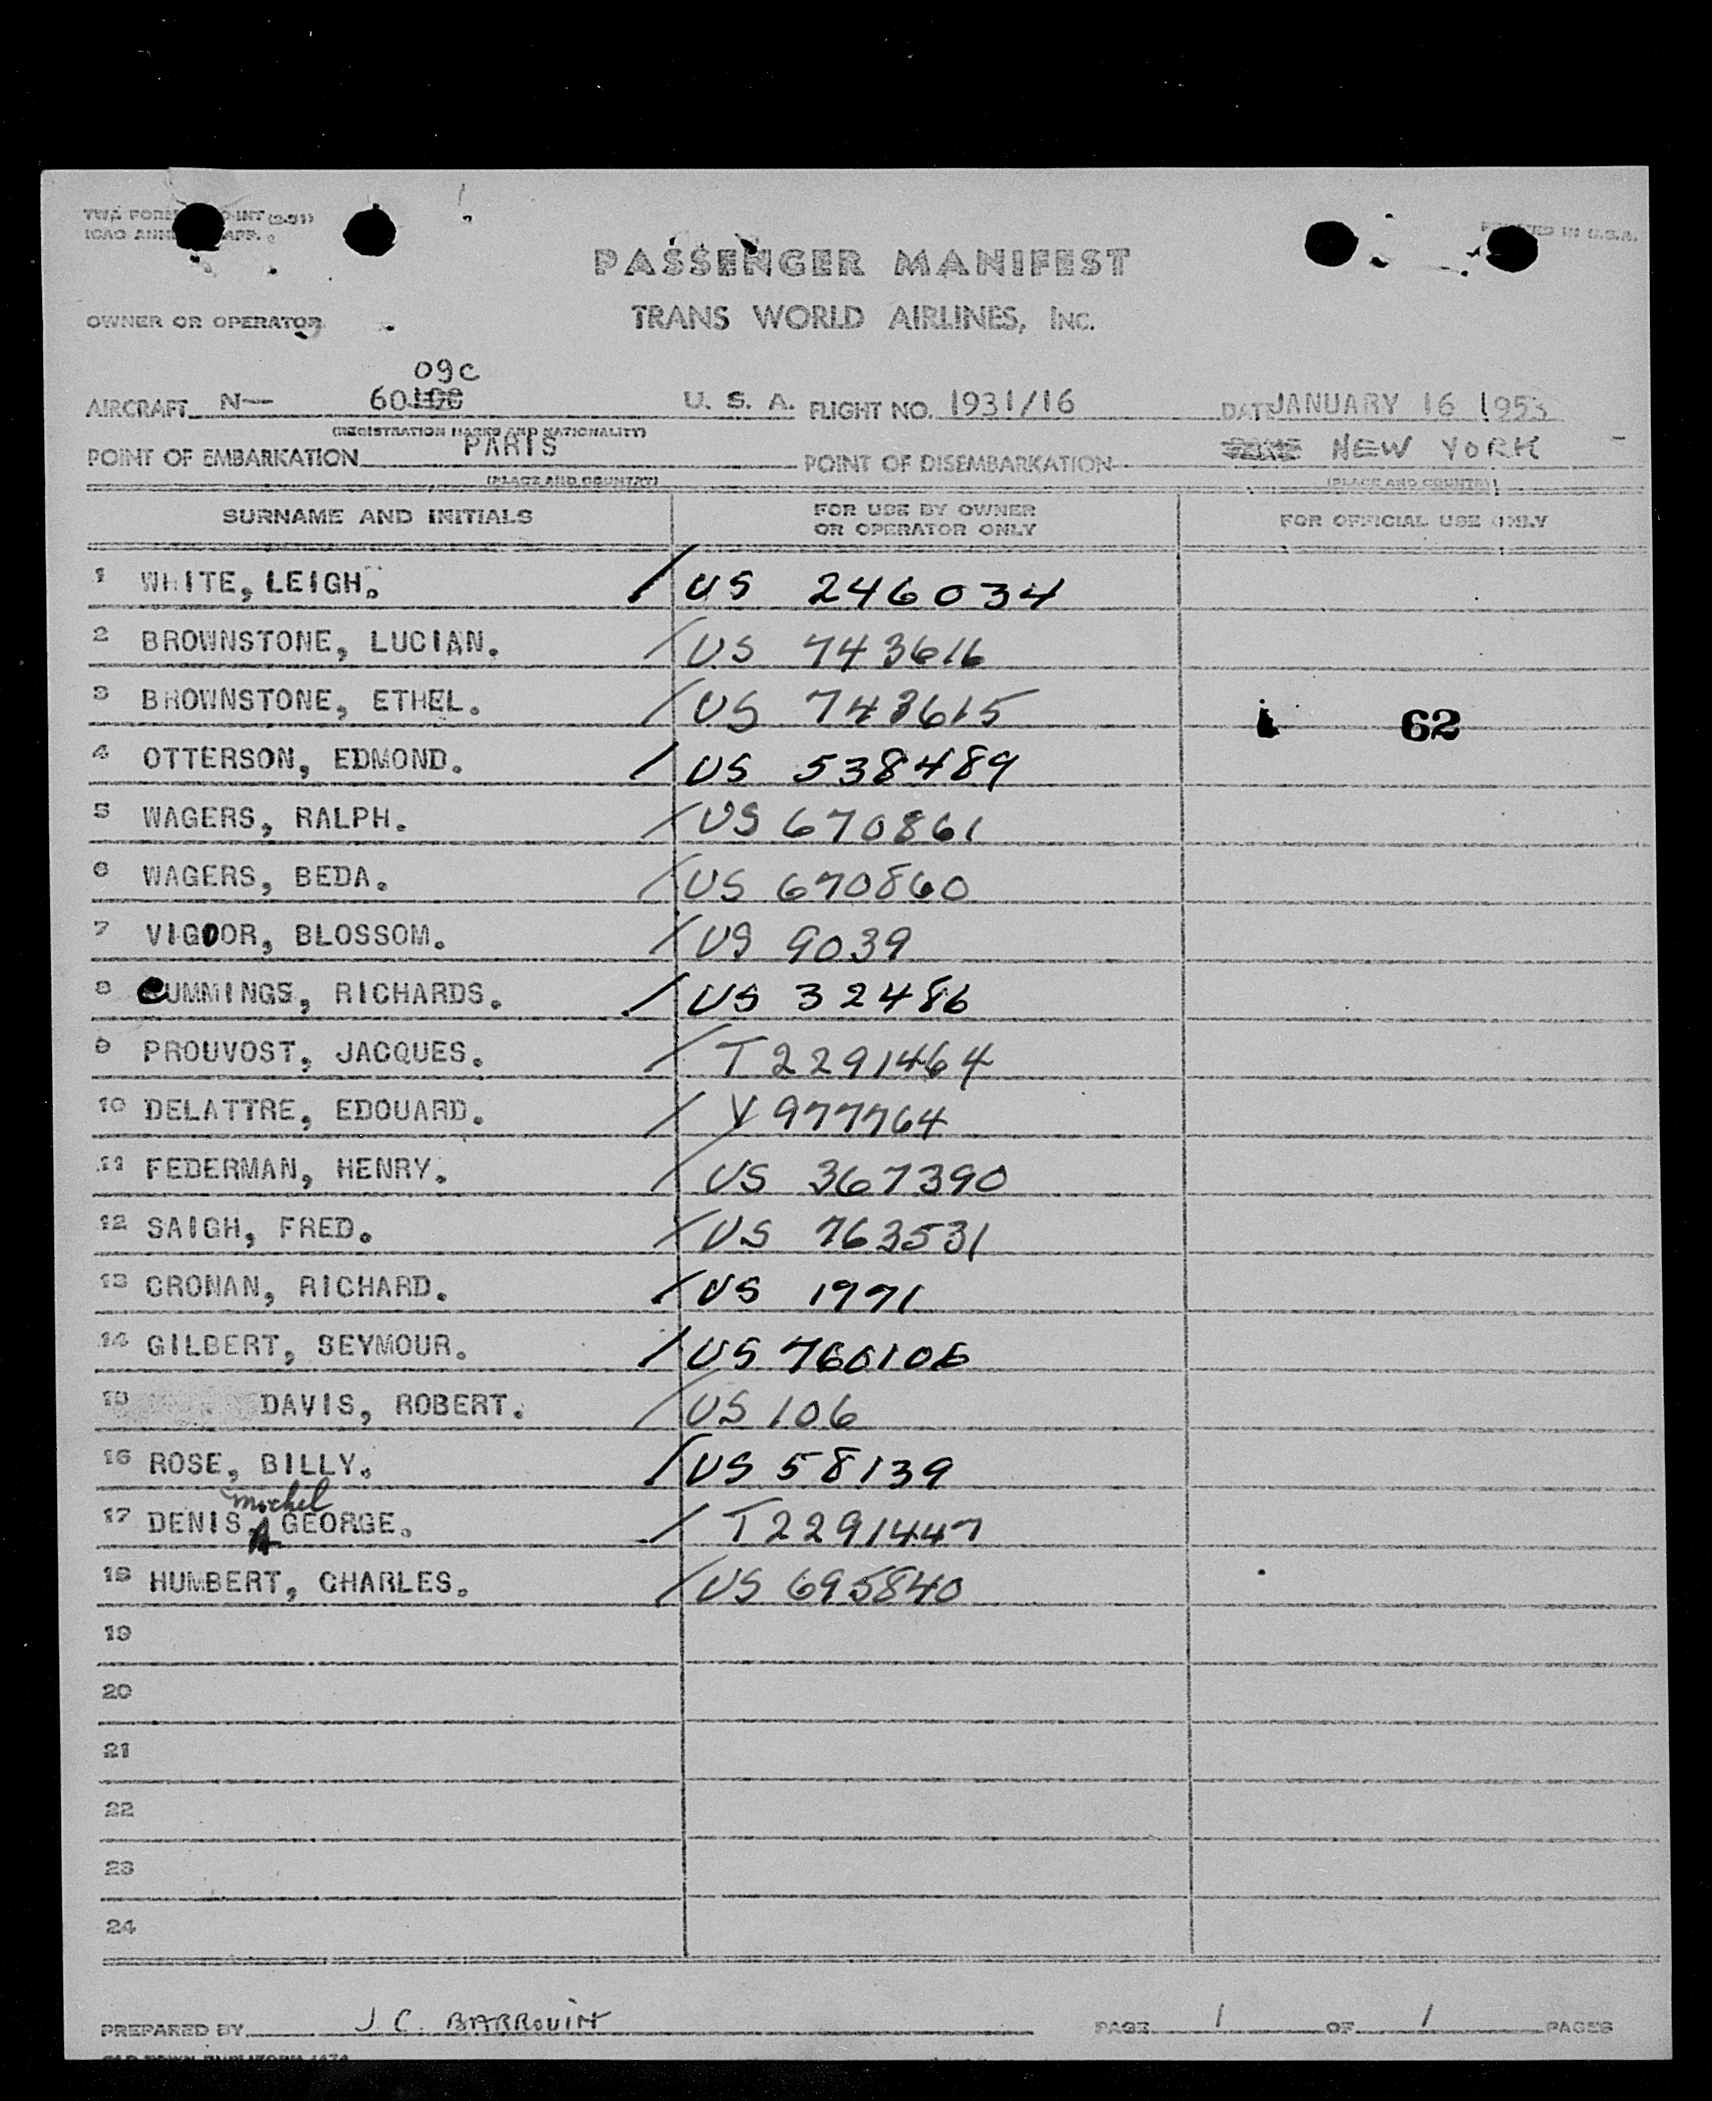 TWA FORM (2-51)
ICAO APP.
IN U.S.A.
PASSENGER MANIFEST
OWNER OR OPERATOR
TRANS WORLD AIRLINES, INC.
09C
AIRCRAFT N— 60 U. S. A. FLIGHT NO. 1931/16 DATE JANUARY 16 1953
(REGISTRATION MARKS AND NATIONALITY)
POINT OF EMBARKATION PARIS POINT OF DISEMBARKATION NEW YORK -
(PLACE AND COUNTRY) (PLACE AND COUNTRY)
SURNAME AND INITIALS FOR USE BY OWNER OR OPERATOR ONLY FOR OFFICIAL USE ONLY
1 WHITE, LEIGH. / US 246034
2 BROWNSTONE, LUCIAN. / US 743616
3 BROWNSTONE, ETHEL. / US 743615 62
4 OTTERSON, EDMOND. / US 538489
5 WAGERS, RALPH. / US 670861
6 WAGERS, BEDA. / US 670860
7 VIGOOR, BLOSSOM. / US 9039
8 CUMMINGS, RICHARDS. / US 32486
9 PROUVOST, JACQUES. / T 2291464
10 DELATTRE, EDOUARD. / Y 977764
11 FEDERMAN, HENRY. / US 367390
12 SAIGH, FRED. / US 763531
13 CRONAN, RICHARD. / US 1971
14 GILBERT, SEYMOUR. / US 760106
15 DAVIS, ROBERT. / US 106
16 ROSE, BILLY. / US 58139
Michel
17 DENIS, GEORGE. / T 2291447
18 HUMBERT, CHARLES. / US 695840
19
20
21
22
23
24
PREPARED BY J. C. BARROUIN PAGE 1 OF 1 PAGES